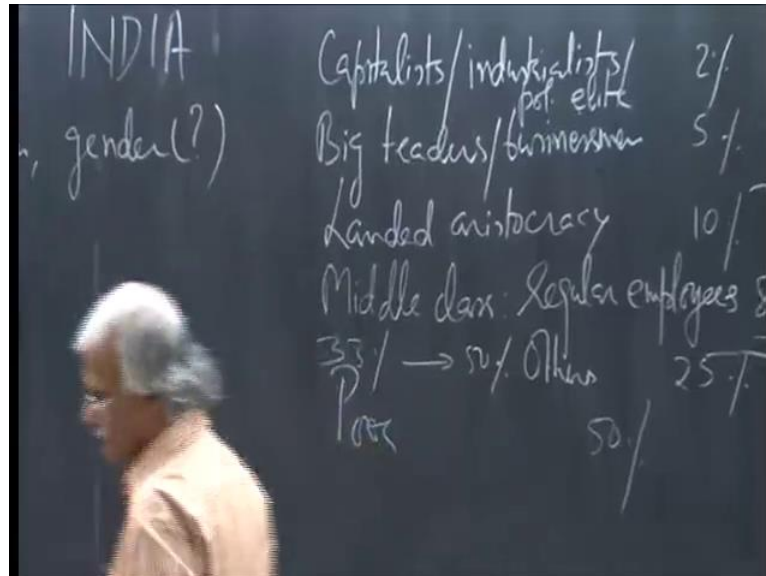 INDIA
gender(?)
Capitalists/industrialists/ 2%
pol. elite
Big traders/businessmen 5%
Landed aristocracy 10%
Middle class: Regular employees 8
33% → 50% Others 25%
Poor 50%